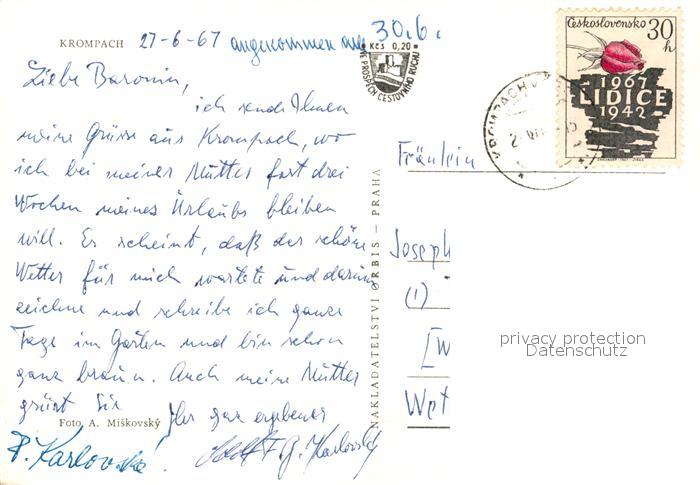 KROMPACH 27-6-67 angenommen am 30.6.
Kčs 0,20
VE PROSPĚCH CESTOVNÍHO RUCHU
Československo 30 h
1967
LIDICE
1942
KROMPACH U
Liebe Baronin,
ich sende Ihnen
meine Grüsse aus Krompach, wo
ich bei meiner Mutter fast drei
Wochen meines Urlaubs bleiben
will. Es scheint, daß das schöne
Wetter für mich wartete und darum
zeichne und schreibe ich ganze
Tage im Garten und bin schon
ganz braun. Auch meine Mutter
grüsst Sie
Ihr ganz ergebener
Foto A. Miškovský
P. Karlovská. Karlovský
NAKLADATELSTVÍ ORBIS — PRAHA
Fräulein
Joseph
(1)
[W
Wet
privacy protection
Datenschutz